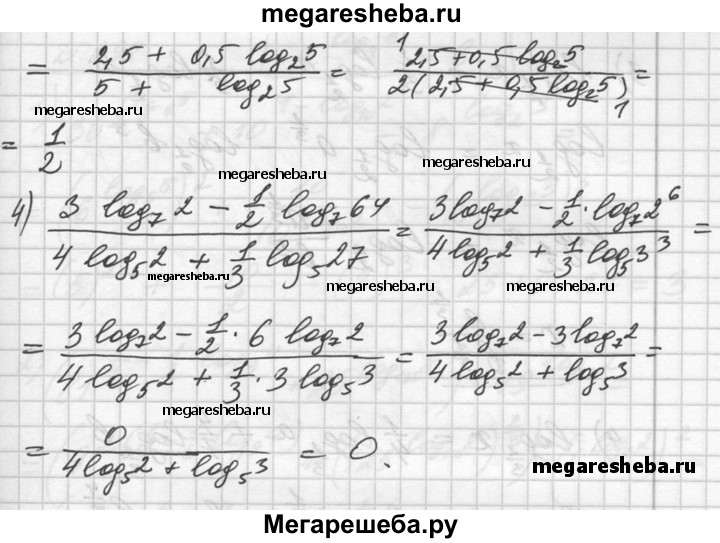 megaresheba.ru
= (2,5 + 0,5 log₂5)/(5 + log₂5) = (2,5+0,5 log₂5)¹/(2(2,5 + 0,5 log₂5)₁) =
megaresheba.ru megaresheba.ru
= 1/2
megaresheba.ru megaresheba.ru
4) (3 log₇2 − 1/2 log₇64)/(4 log₅2 + 1/3 log₅27) = (3log₇2 − 1/2 · log₇2⁶)/(4log₅2 + 1/3 log₅3³) =
megaresheba.ru
= (3 log₇2 − 1/2 · 6 log₇2)/(4 log₅2 + 1/3 · 3 log₅3) = (3log₇2 − 3log₇2)/(4log₅2 + log₅3) =
megaresheba.ru
= 0/(4log₅2 + log₅3) = 0.
megaresheba.ru
Мегарешеба.ру